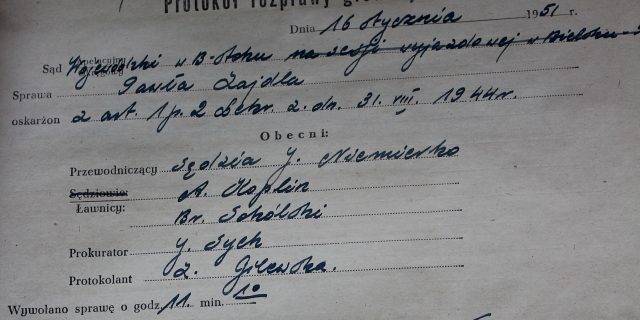 Protokół rozprawy
Dnia 16 stycznia 1951 r.
Sąd Wojewódzki w B-stoku na sesji wyjazdowej w Bielsku
Sprawa Pawła Zajdla
oskarżon z art. 1 p. 2 Dekr. z dn. 31. VIII. 1944 r.
Obecni:
Przewodniczący Sędzia J. Niemierko
Sędziowie: A. Koplin
Ławnicy: Br. Sokólski
Prokurator J. Sych
Protokolant Z. Gilewska.
Wywołano sprawę o godz. 11 min. 10